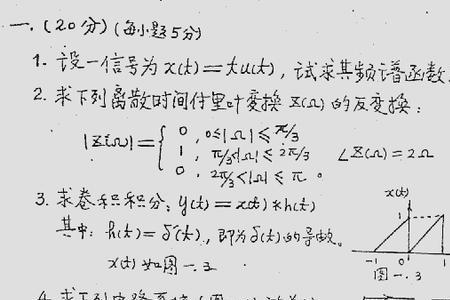 一.(20分)(每小题5分)
1. 设一信号为 x(t)=tu(t), 试求其频谱函数.
2. 求下列离散时间付里叶变换 X(Ω) 的反变换:
|X(Ω)|= { 0, 0≤|Ω|≤π/3
1, π/3<|Ω|≤2π/3 ∠X(Ω)=2Ω
0, 2π/3<|Ω|≤π。
3. 求卷积积分: y(t)=x(t)*h(t)
其中: h(t)=δ'(t), 即为δ(t)的导数。
x(t) 如图一.3
x(t)
1
-1 0 1
图一.3